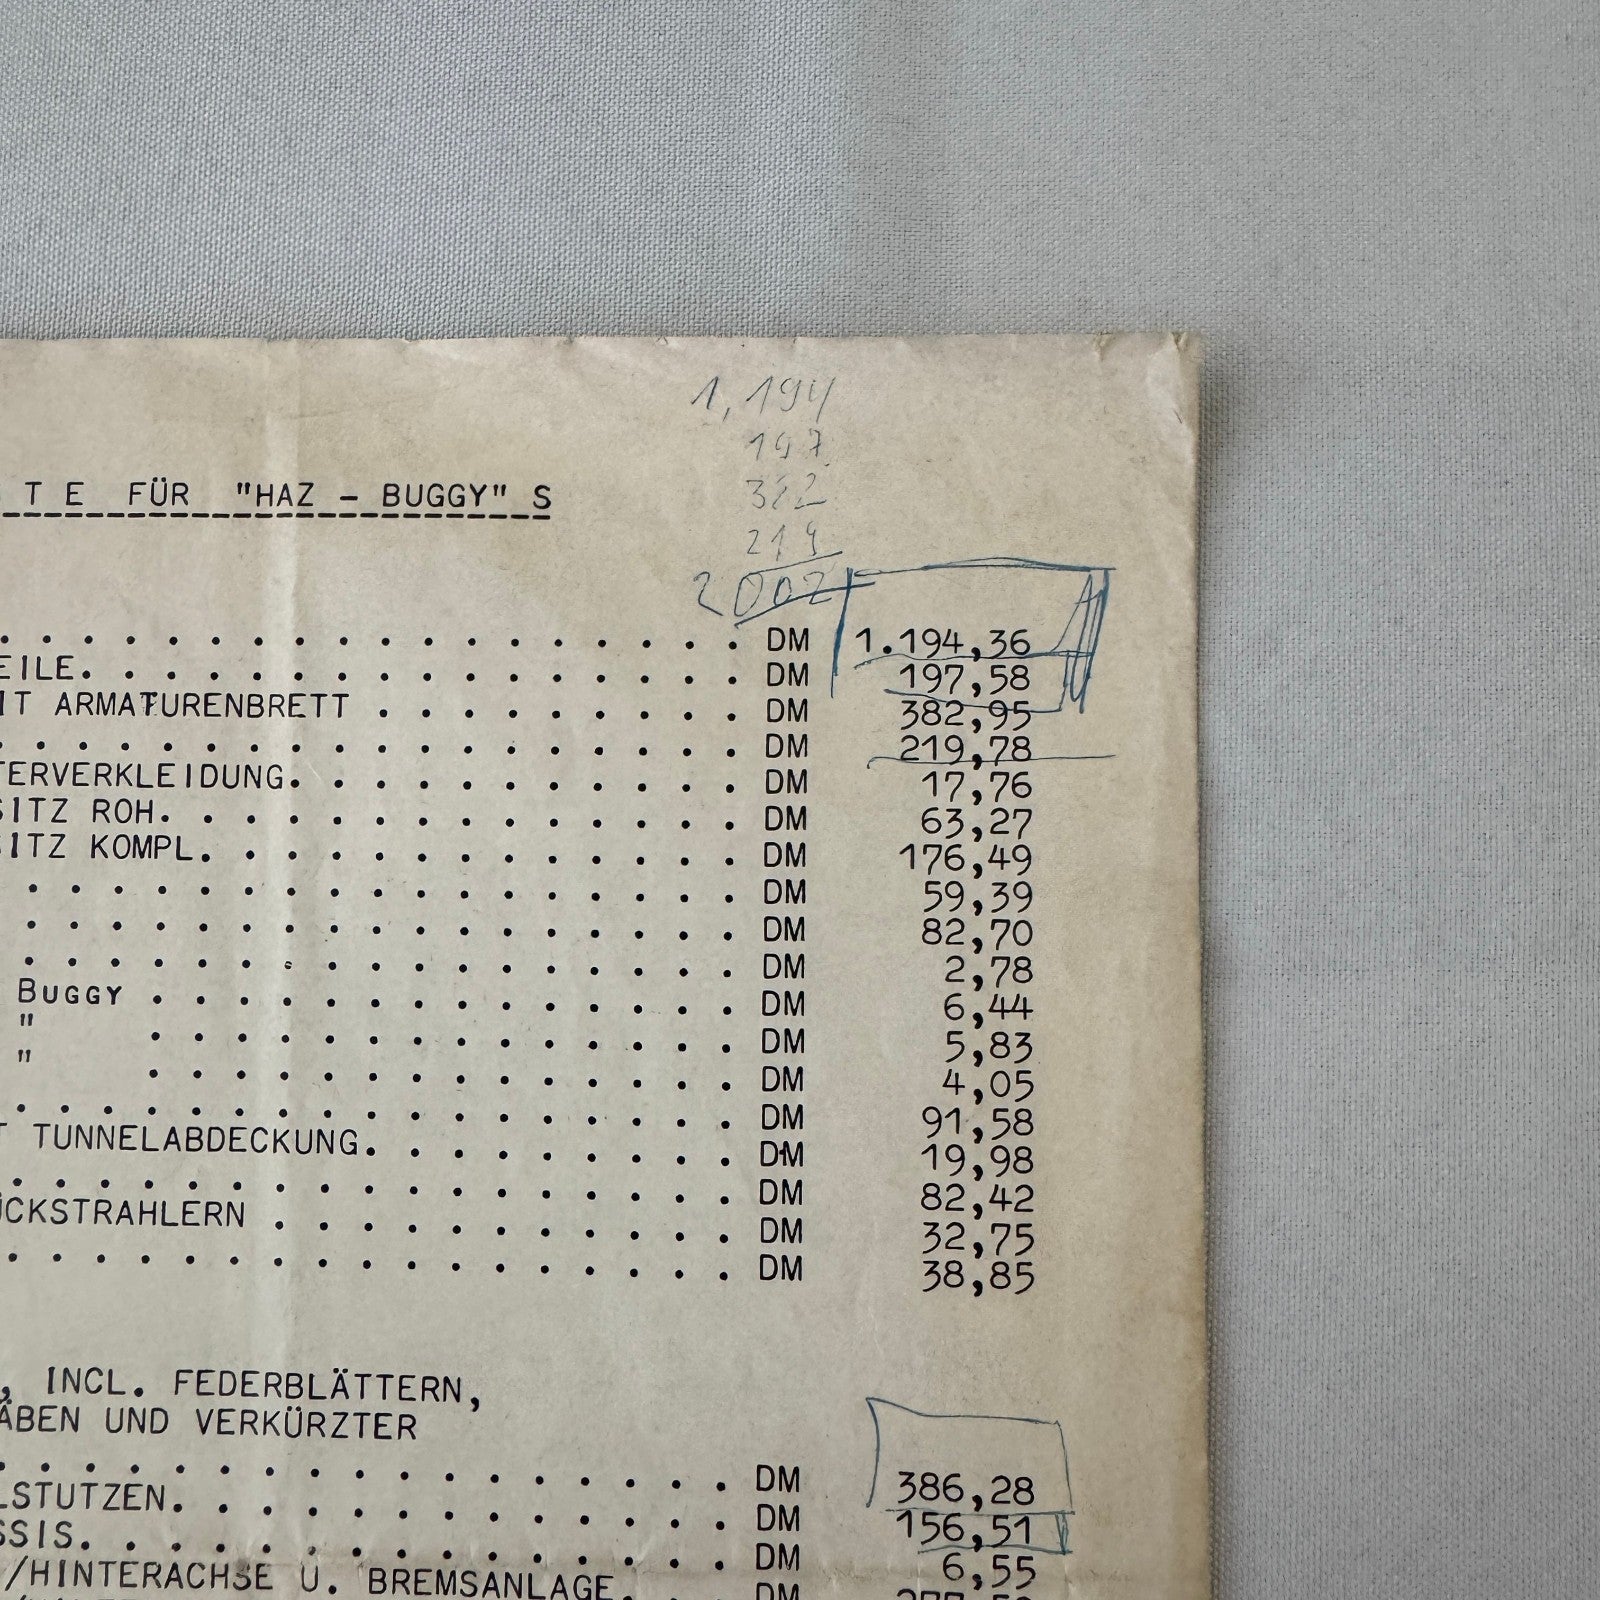 1,194
197
382
219
2002
TE FÜR "HAZ - BUGGY" S
. . . . . . . . . . . . . . . . . . DM 1.194,36
EILE. . . . . . . . . . . . . . . . DM 197,58
IT ARMATURENBRETT . . . . . . . . . DM 382,95
. . . . . . . . . . . . . . . . . . DM 219,78
TERVERKLEIDUNG. . . . . . . . . . . DM 17,76
SITZ ROH. . . . . . . . . . . . . . DM 63,27
SITZ KOMPL. . . . . . . . . . . . . DM 176,49
. . . . . . . . . . . . . . . . . DM 59,39
. . . . . . . . . . . . . . . . . DM 82,70
. . . . . . . . . . . . . . . . . DM 2,78
BUGGY . . . . . . . . . . . . . . DM 6,44
" . . . . . . . . . . . . . . DM 5,83
" . . . . . . . . . . . . . . DM 4,05
. . . . . . . . . . . . . . . . . DM 91,58
T TUNNELABDECKUNG. . . . . . . . . DM 19,98
. . . . . . . . . . . . . . . . . DM 82,42
ÜCKSTRAHLERN . . . . . . . . . . . DM 32,75
. . . . . . . . . . . . . . . . . DM 38,85
, INCL. FEDERBLÄTTERN,
ÄBEN UND VERKÜRZTER
. . . . . . . . . . . . . . . . . DM 386,28
LSTUTZEN. . . . . . . . . . . . . DM 156,51
SSIS. . . . . . . . . . . . . . . DM 6,55
/HINTERACHSE U. BREMSANLAGE. . . . DM